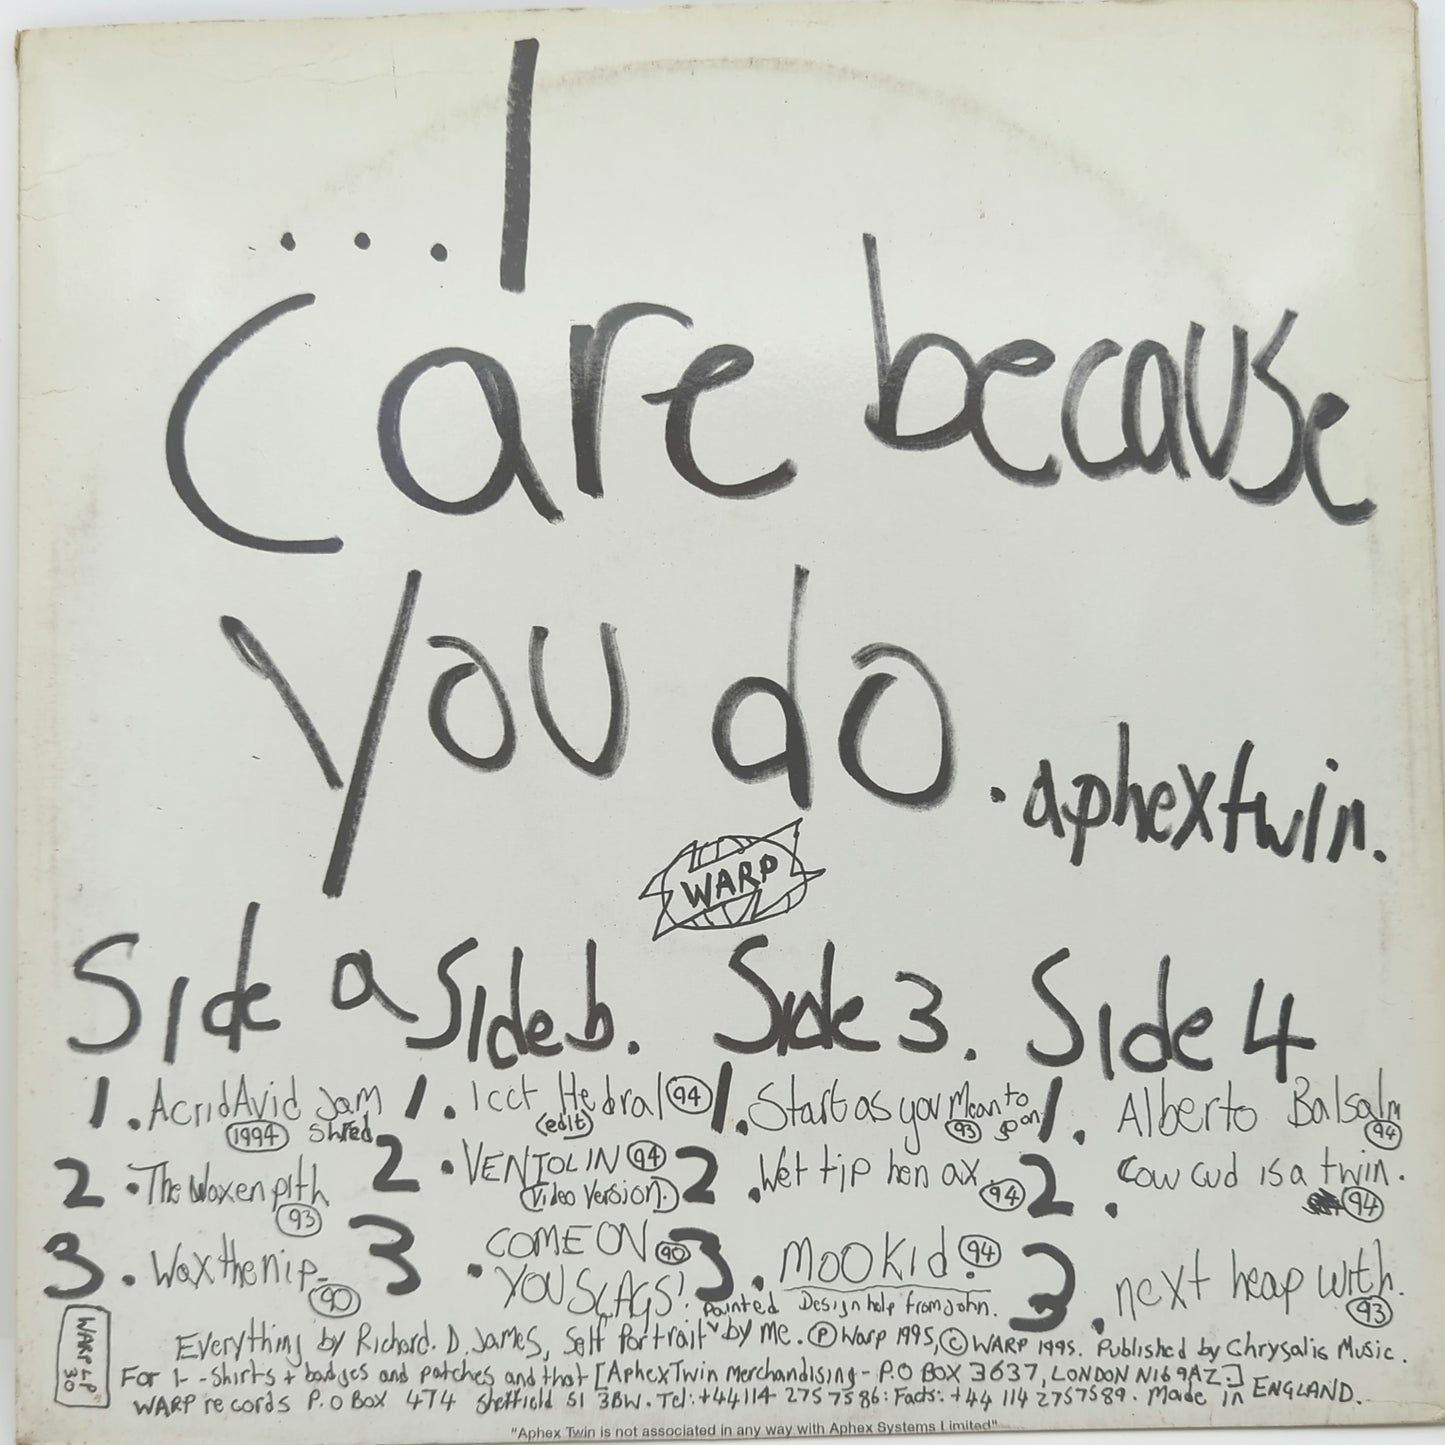 ...I
care because
you do. aphextwin.
WARP
Side a
1. AcridAvid Jam Shred
1994
2. The Waxen pith
93
3. Wax the nip
90
Side b.
1. Icct Hedral 94
(edit)
2. VENTOLIN 94
(Video Version).
3. COME ON 90
YOU SLAGS!
Side 3.
1. Start as you Mean to
93 go on
2. Wet tip hen ax. 94
3. MOOKid. 94
Side 4
1. Alberto Balsalm
94
2. Cow cud is a twin.
94
3. next heap with.
93
painted Design help from John.
Everything by Richard. D. James, Self Portrait ᵛ by me. Ⓟ Warp 1995, © WARP 1995. Published by Chrysalis Music.
For T-Shirts + badges and patches and that [AphexTwin Merchandising - P.O BOX 3637, LONDON N16 9AZ.]
WARP records P.O Box 474 Sheffield S1 3BW. Tel: +44114 275 7586: Facts: +44 114 2757589. Made in ENGLAND.
WARP LP
30
"Aphex Twin is not associated in any way with Aphex Systems Limited"